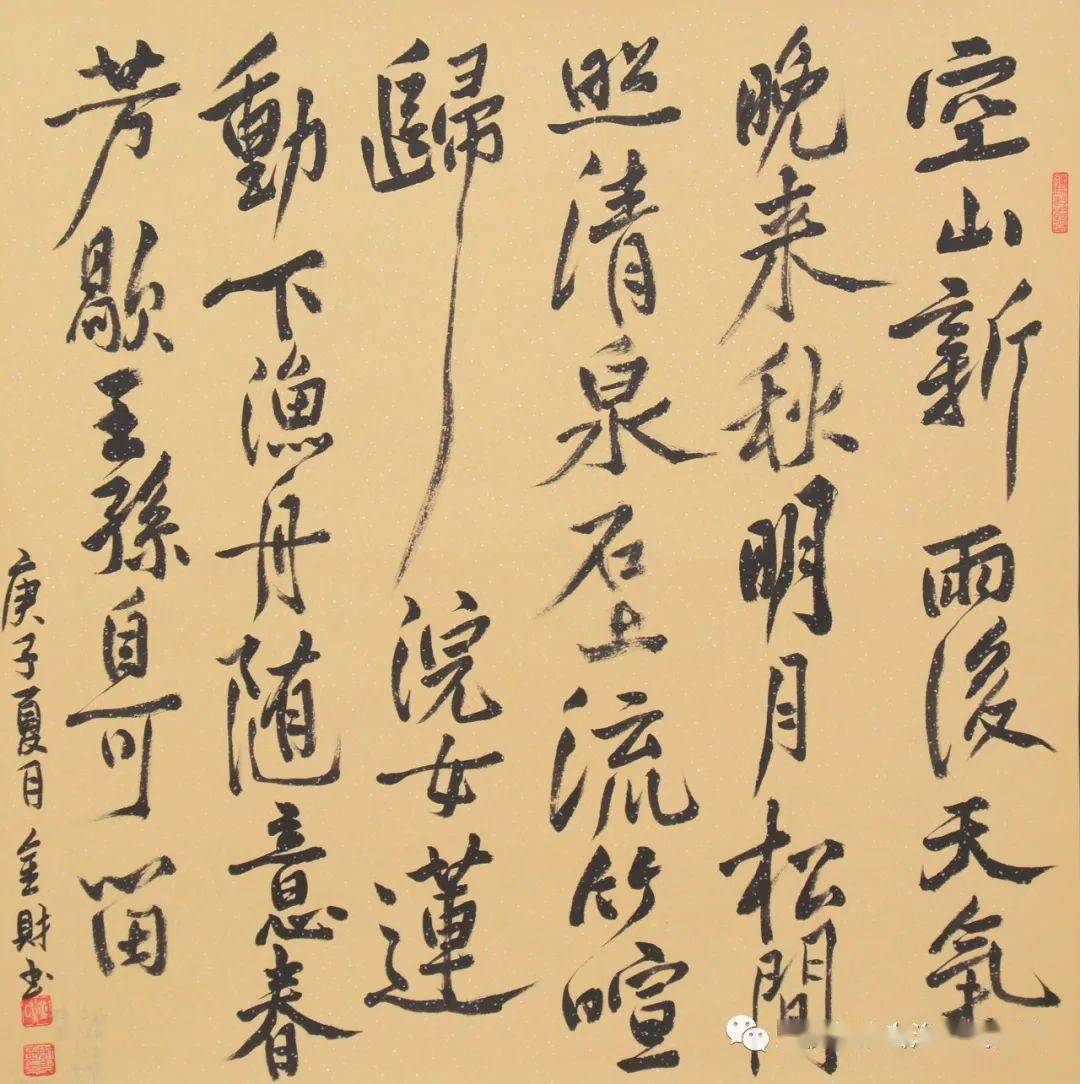 空山新雨後天氣
晚来秋明月松間
照清泉石上流竹喧
歸浣女蓮
動下漁舟随意春
芳歇王孫自可留
庚子夏月金財书